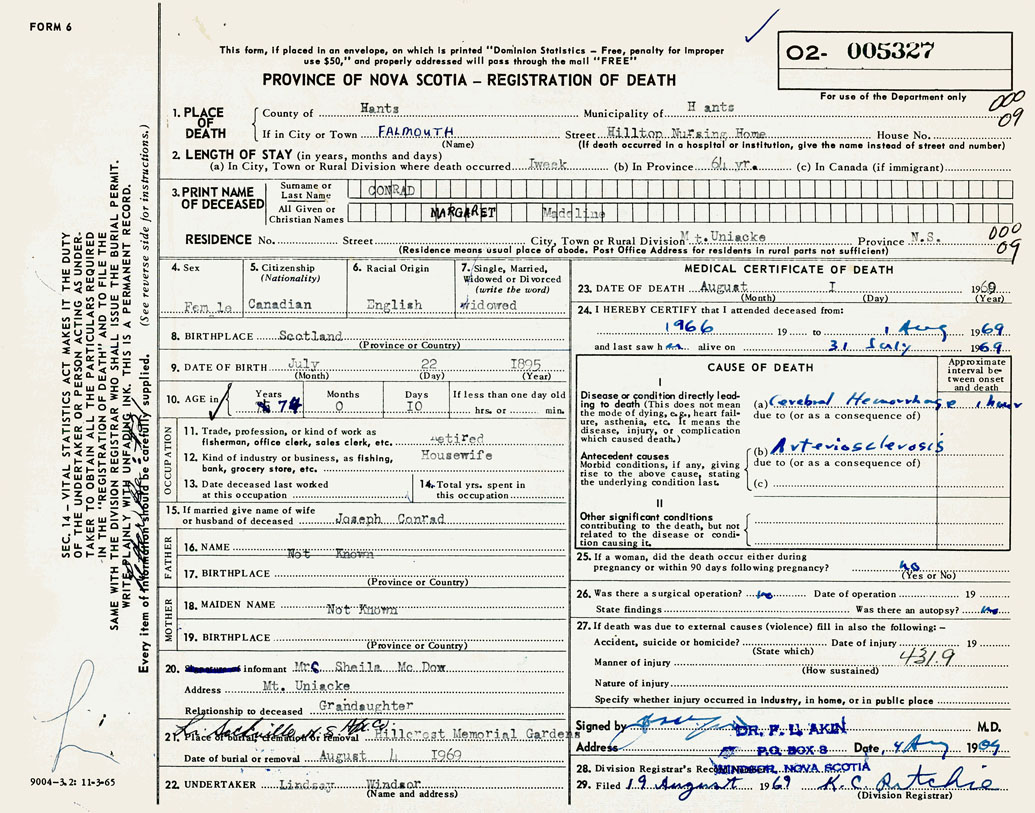 FORM 6
This form, if placed in an envelope, on which is printed "Dominion Statistics – Free, penalty for improper
use $50," and properly addressed will pass through the mail "FREE"
PROVINCE OF NOVA SCOTIA – REGISTRATION OF DEATH
02- 005327
For use of the Department only
000
09
1. PLACE OF DEATH
County of Hants Municipality of H ants
If in City or Town FALMOUTH Street Hilltop Nursing Home House No.
(Name) (If death occurred in a hospital or institution, give the name instead of street and number)
2. LENGTH OF STAY (in years, months and days)
(a) In City, Town or Rural Division where death occurred Iweek (b) In Province 64 yr. (c) In Canada (if immigrant)
3. PRINT NAME OF DECEASED
Surname or Last Name CONRAD
All Given or Christian Names MARGARET Madeline
000
09
RESIDENCE No. Street City, Town or Rural Division Mt.Uniacke Province N.S.
(Residence means usual place of abode. Post Office Address for residents in rural parts not sufficient)
4. Sex Fem le
5. Citizenship (Nationality) Canadian
6. Racial Origin English
7. Single, Married, Widowed or Divorced (write the word) widowed
8. BIRTHPLACE Scotland
(Province or Country)
9. DATE OF BIRTH July 22 1895
(Month) (Day) (Year)
10. AGE in Years 74 Months 0 Days I0 If less than one day old hrs. or min.
OCCUPATION
11. Trade, profession, or kind of work as fisherman, office clerk, sales clerk, etc. retired
12. Kind of industry or business, as fishing, bank, grocery store, etc. Housewife
13. Date deceased last worked at this occupation
14. Total yrs. spent in this occupation
15. If married give name of wife or husband of deceased Joseph Conrad
FATHER
16. NAME Not Known
17. BIRTHPLACE
(Province or Country)
MOTHER
18. MAIDEN NAME Not Known
19. BIRTHPLACE
(Province or Country)
20. informant Mrs Sheila Mc Dow
Address Mt. Uniacke
Relationship to deceased Grandaughter
L. Sackville N.S. Hfx Co.
21. Place of burial, cremation or removal Hillcrest Memorial Gardens
Date of burial or removal August 4 1969
22. UNDERTAKER Lindsay Windsor
(Name and address)
MEDICAL CERTIFICATE OF DEATH
23. DATE OF DEATH August I 1969
(Month) (Day) (Year)
24. I HEREBY CERTIFY that I attended deceased from:
1966 19 to 1 Aug 1969
and last saw her alive on 31 July 1969
CAUSE OF DEATH
Approximate interval between onset and death
I
Disease or condition directly leading to death (This does not mean the mode of dying, e.g., heart failure, asthenia, etc. It means the disease, injury, or complication which caused death.)
(a) Cerebral Hemorrhage 1 hour
due to (or as a consequence of)
Antecedent causes
Morbid conditions, if any, giving rise to the above cause, stating the underlying condition last.
(b) Arteriosclerosis
due to (or as a consequence of)
(c)
II
Other significant conditions
contributing to the death, but not related to the disease or condition causing it.
25. If a woman, did the death occur either during pregnancy or within 90 days following pregnancy? no
(Yes or No)
26. Was there a surgical operation? no Date of operation 19
State findings Was there an autopsy? no
27. If death was due to external causes (violence) fill in also the following: –
Accident, suicide or homicide? Date of injury 19
(State which)
Manner of injury 431.9
(How sustained)
Nature of injury
Specify whether injury occurred in Industry, in home, or in public place
Signed by DR. F. L. AKIN M.D.
Address P.O. BOX 8 Date, 4 Aug 1969
WINDSOR, NOVA SCOTIA
28. Division Registrar's Rec
29. Filed 19 August 1969 K. C. Ritchie
(Division Registrar)
SEC. 14 – VITAL STATISTICS ACT MAKES IT THE DUTY
OF THE UNDERTAKER OR PERSON ACTING AS UNDER-
TAKER TO OBTAIN ALL THE PARTICULARS REQUIRED
IN THE "REGISTRATION OF DEATH" AND TO FILE THE
SAME WITH THE DIVISION REGISTRAR WHO SHALL ISSUE THE BURIAL PERMIT.
WRITE PLAINLY WITH UNFADING INK. THIS IS A PERMANENT RECORD.
Every item of information should be carefully supplied. (See reverse side for instructions.)
9004-3.2: 11-3-65